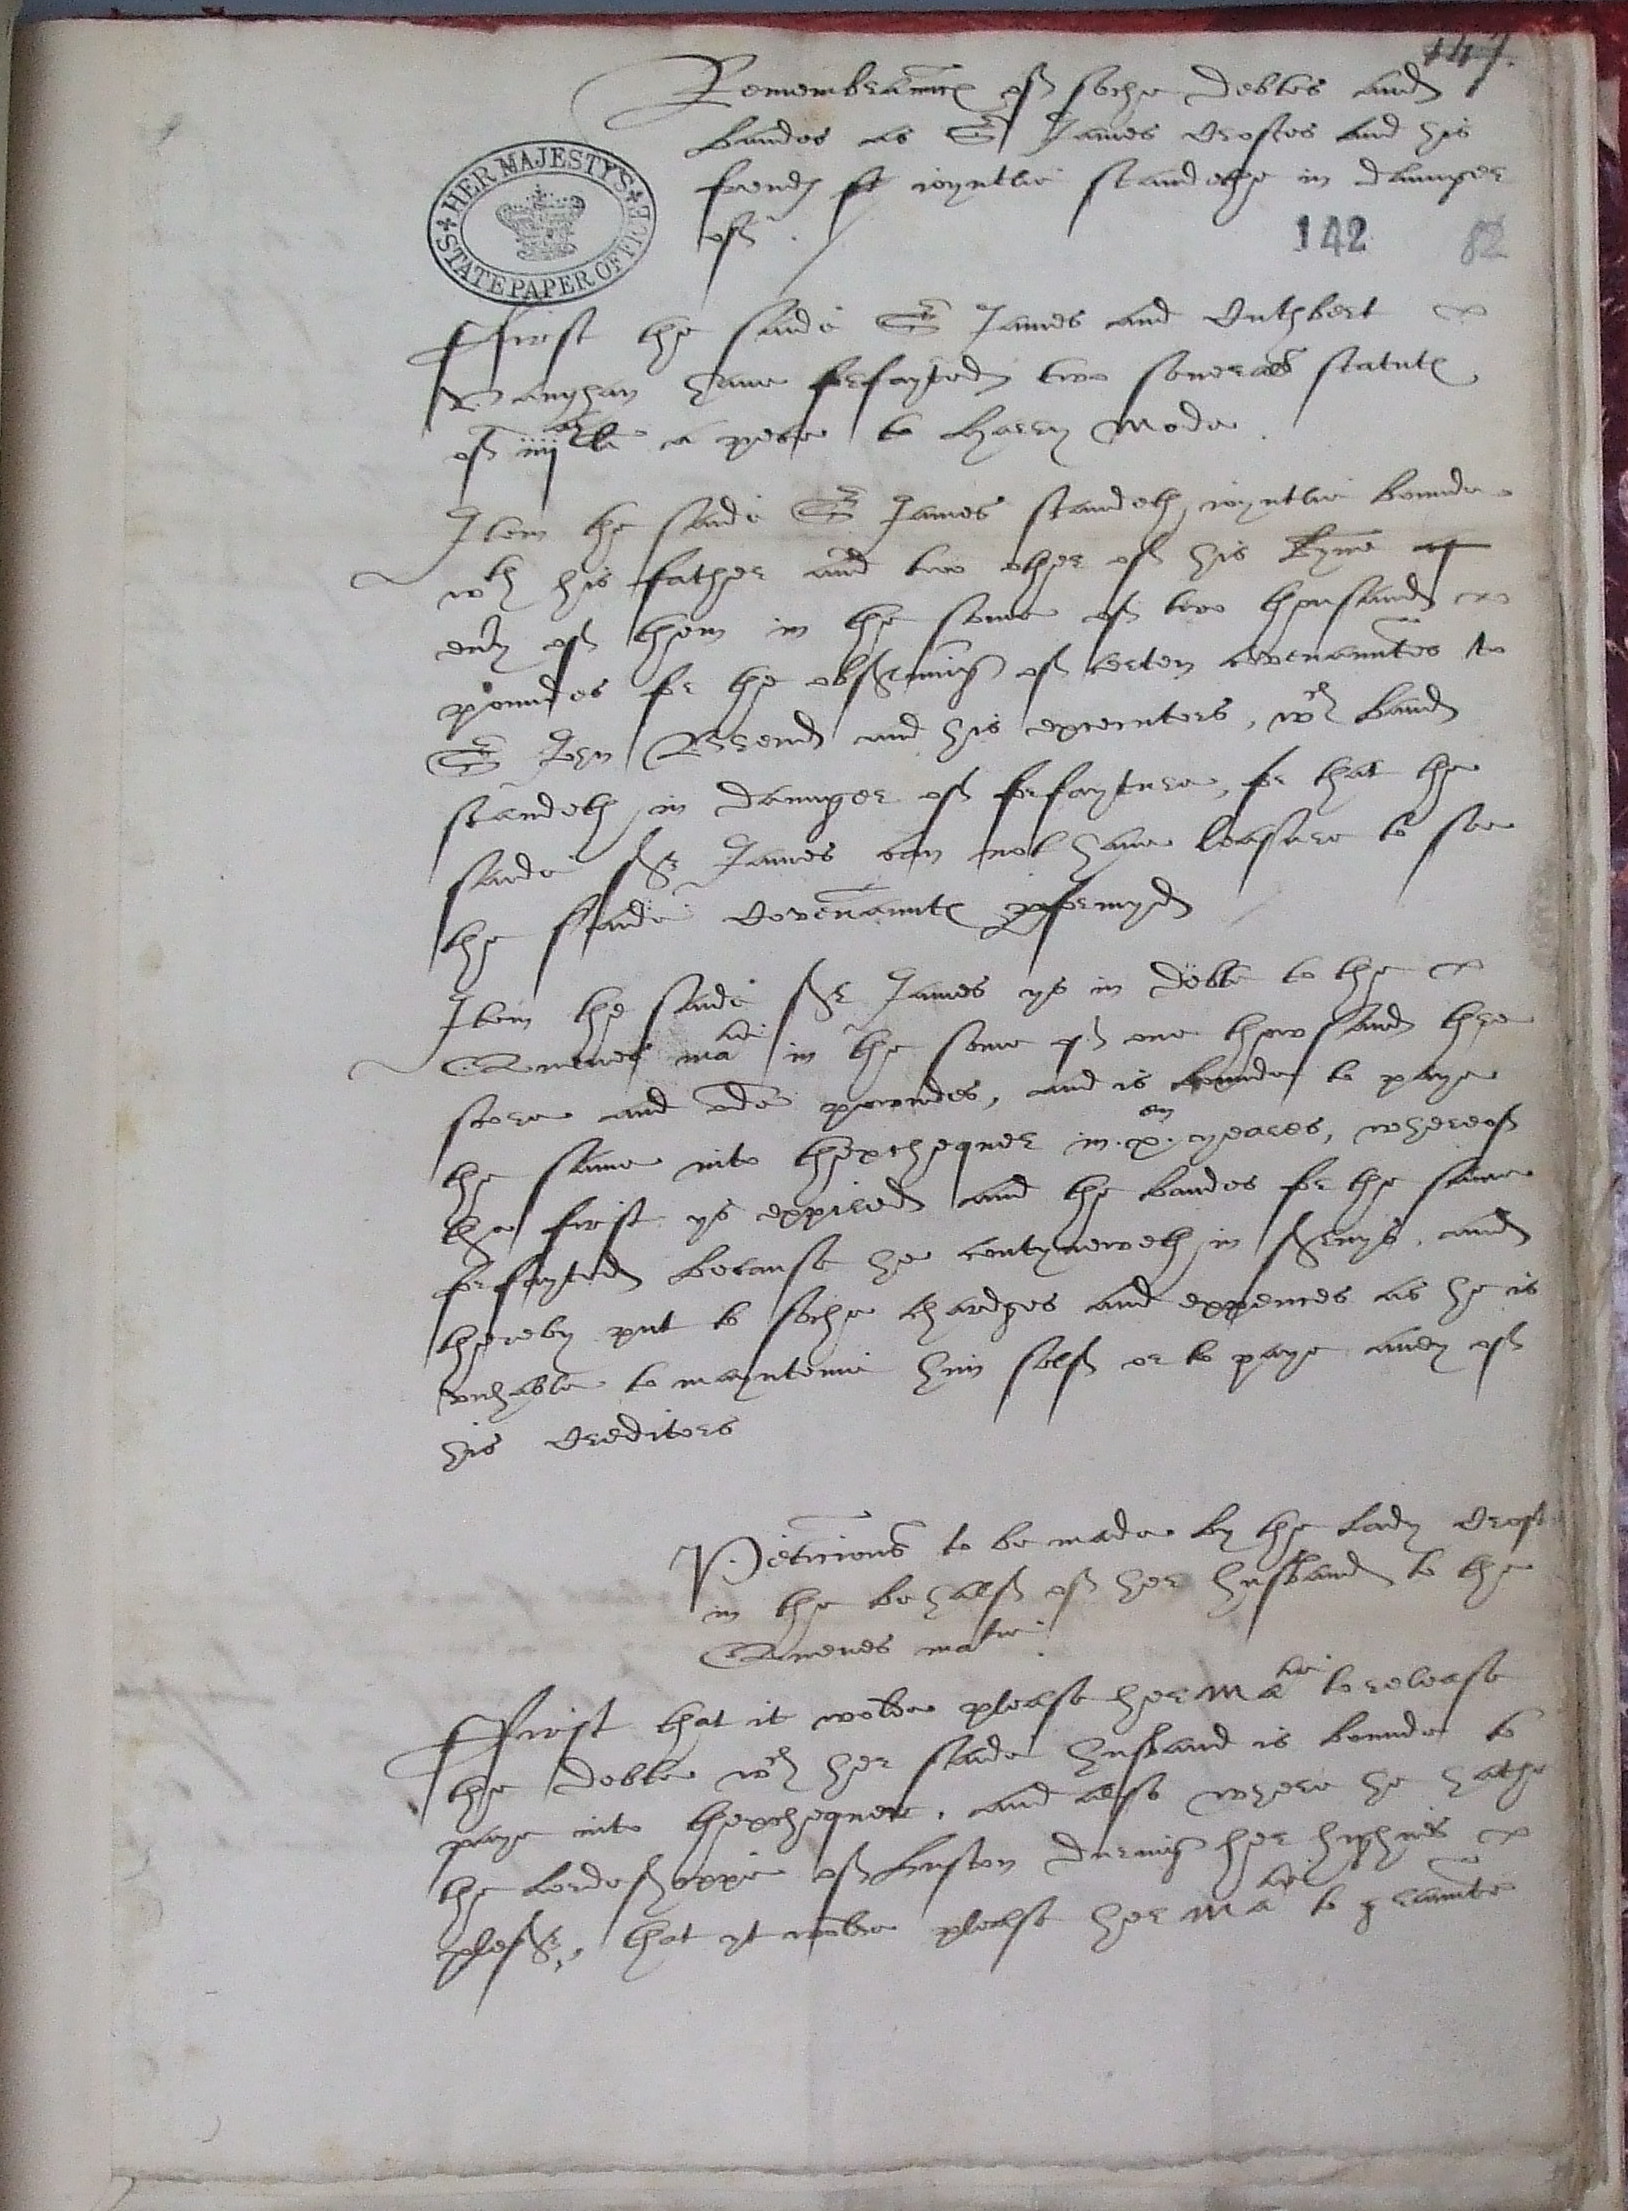 147.
Remembraunce of soche debtes and
bandes as Sr James Croftes and his
frends st ioyntlie standethe in daunger
of.
HER MAJESTY'S STATE PAPER OFFICE
142 82
First the saide Sr James and Cuthbert
Vaughan haue forfayted two seuerall statutes
of iiijc li a pece to Harry
Item the saide Sr James standeth ioyntlie bounde
wth his father and two other of his kynne
eny of them in the some of two thousand
poundes for the obseruing of certen covenauntes to
Sr Jhn Brend and his executors, wch band
standeth in daunger of forfayture, for that the
saide Sr James can not haue leasure to see
the saide Covenauntes pformyd
Item the saide Sr James ys in debte to the
Quenes matie in the some of one thowsand thre
score and odde powndes, and is bounde to paye
the same into thexchequer in .x. yeares, whereof
the first ys expired and the bandes for the same
forfayted because he contyneweth in seruys, and
thereby put to soche chardges and expences as he is
vnhable to maynteine him self or to paye any of
his Creditors
Peticions to be made by the Lady Croft
in the behalf of her husband to the
Quenes matie.
First that it wolde please her Matie to release
the debte wch her saide husband is bounde to
paye into thexchequer, and also where he hathe
the Lordeshippe of Luston during her highnes
plesr, that yt wolde please her Matie to graunte